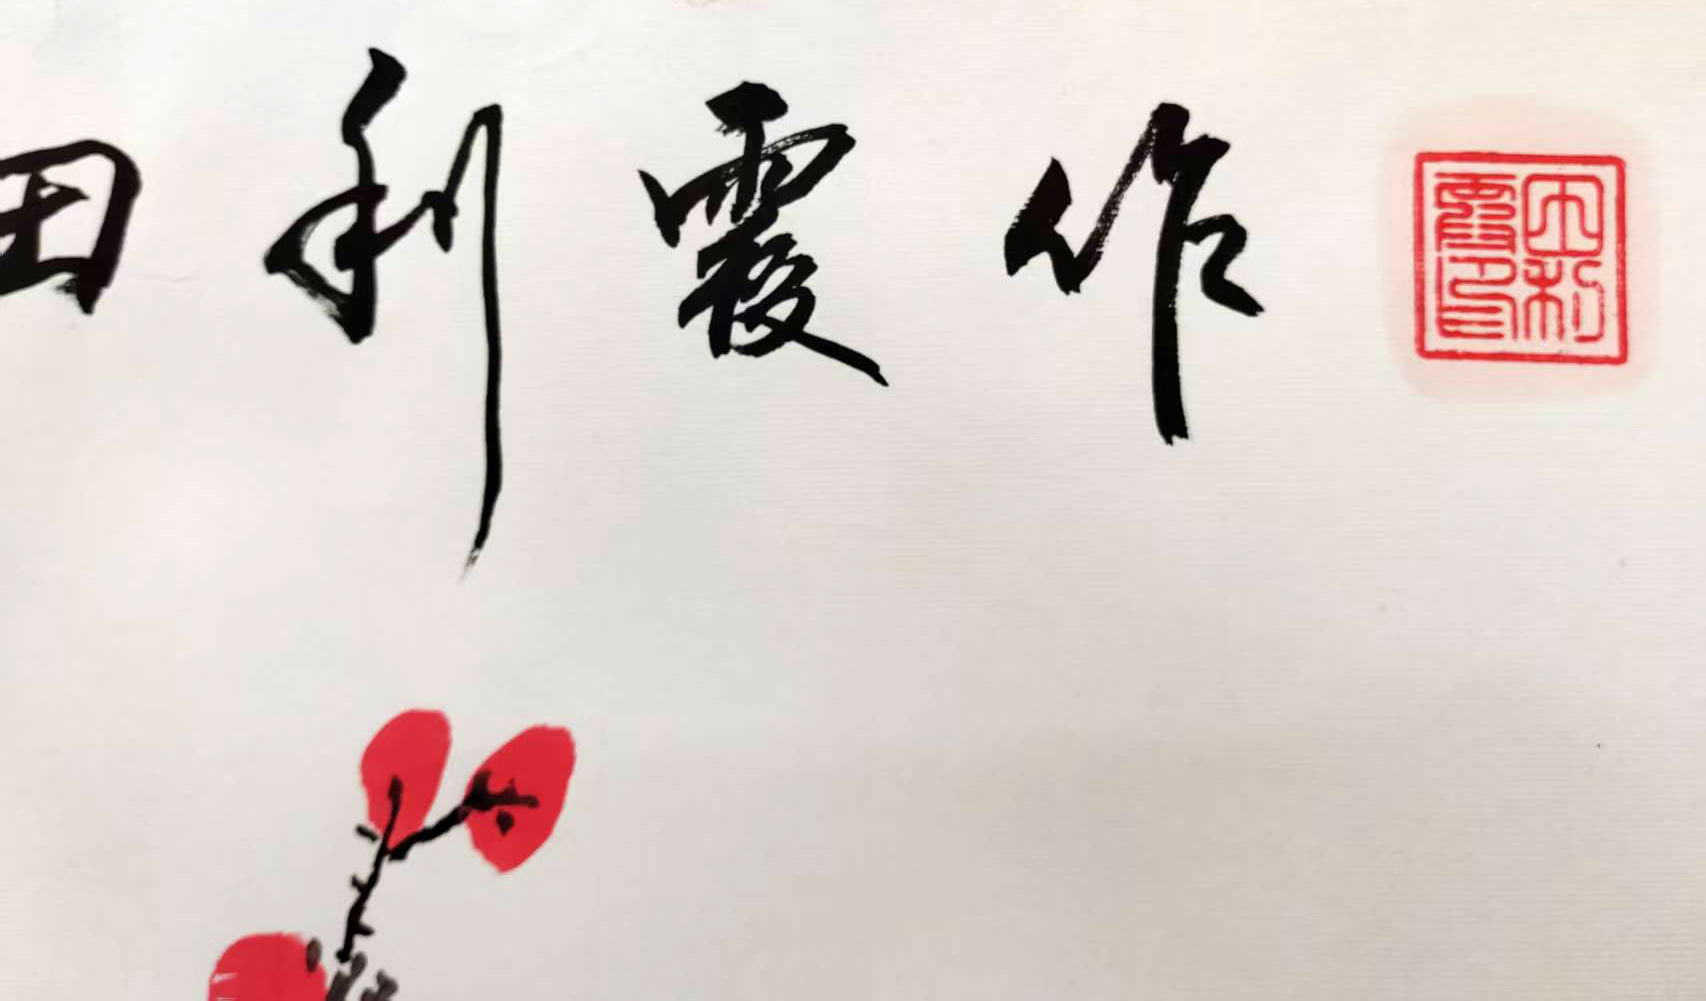 田利霞作
利
霞印